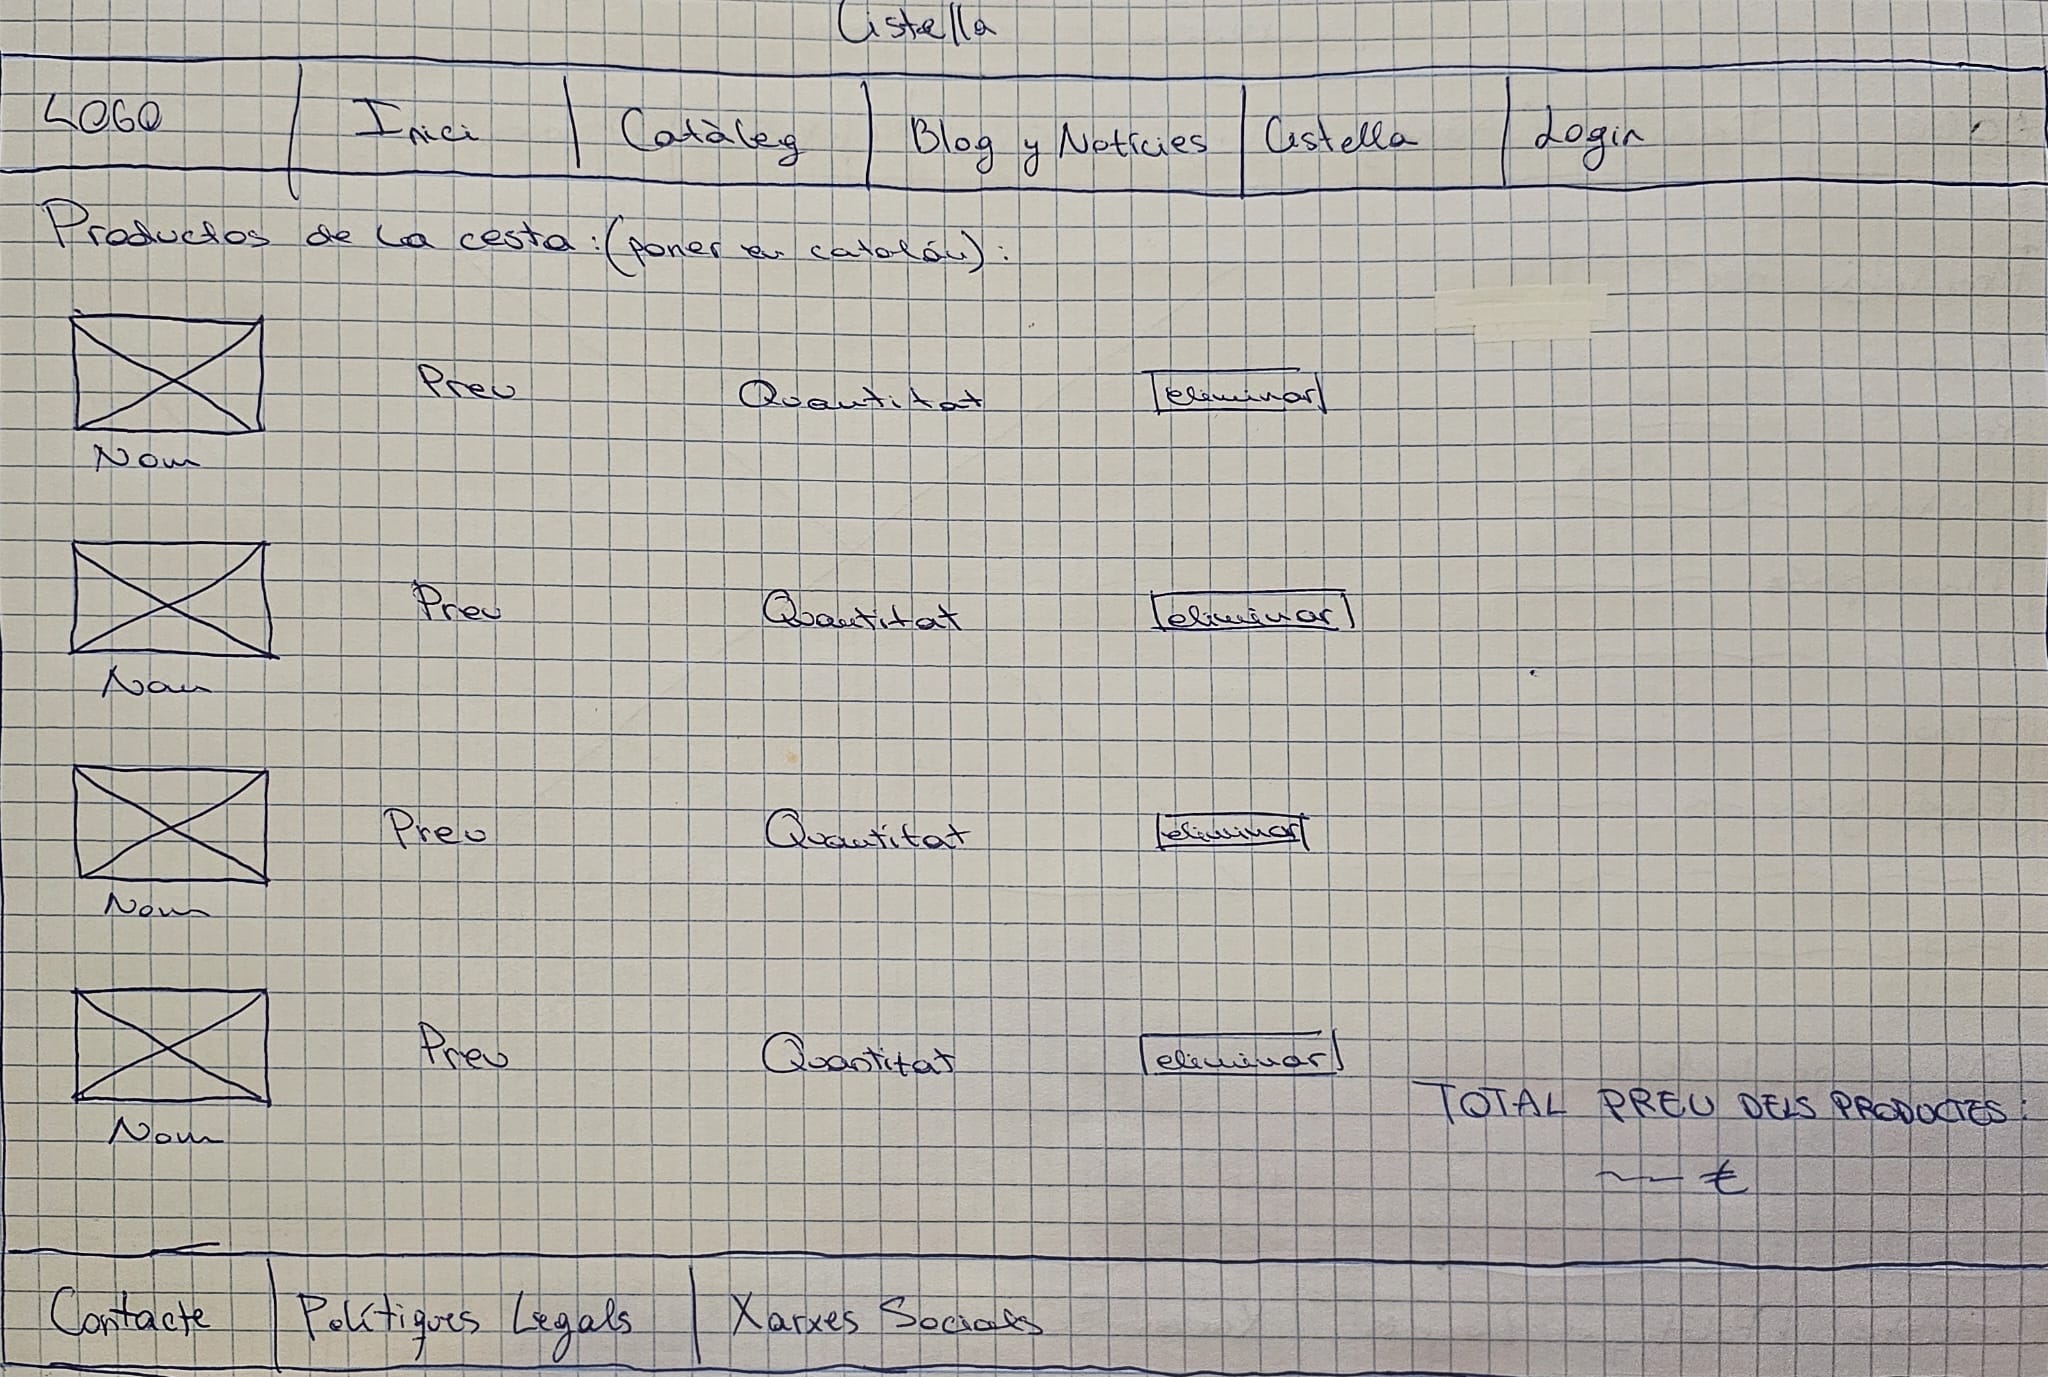 Cistella
LOGO Inici Catàleg Blog y Notícies Cistella Login
Productos de la cesta: (poner en catalán):
Preu Quantitat eliminar
Nom
Preu Quantitat eliminar
Nom
Preu Quantitat eliminar
Nom
Preu Quantitat eliminar
TOTAL PREU DELS PRODUCTES:
Nom
€
Contacte Polítiques Legals Xarxes Socials